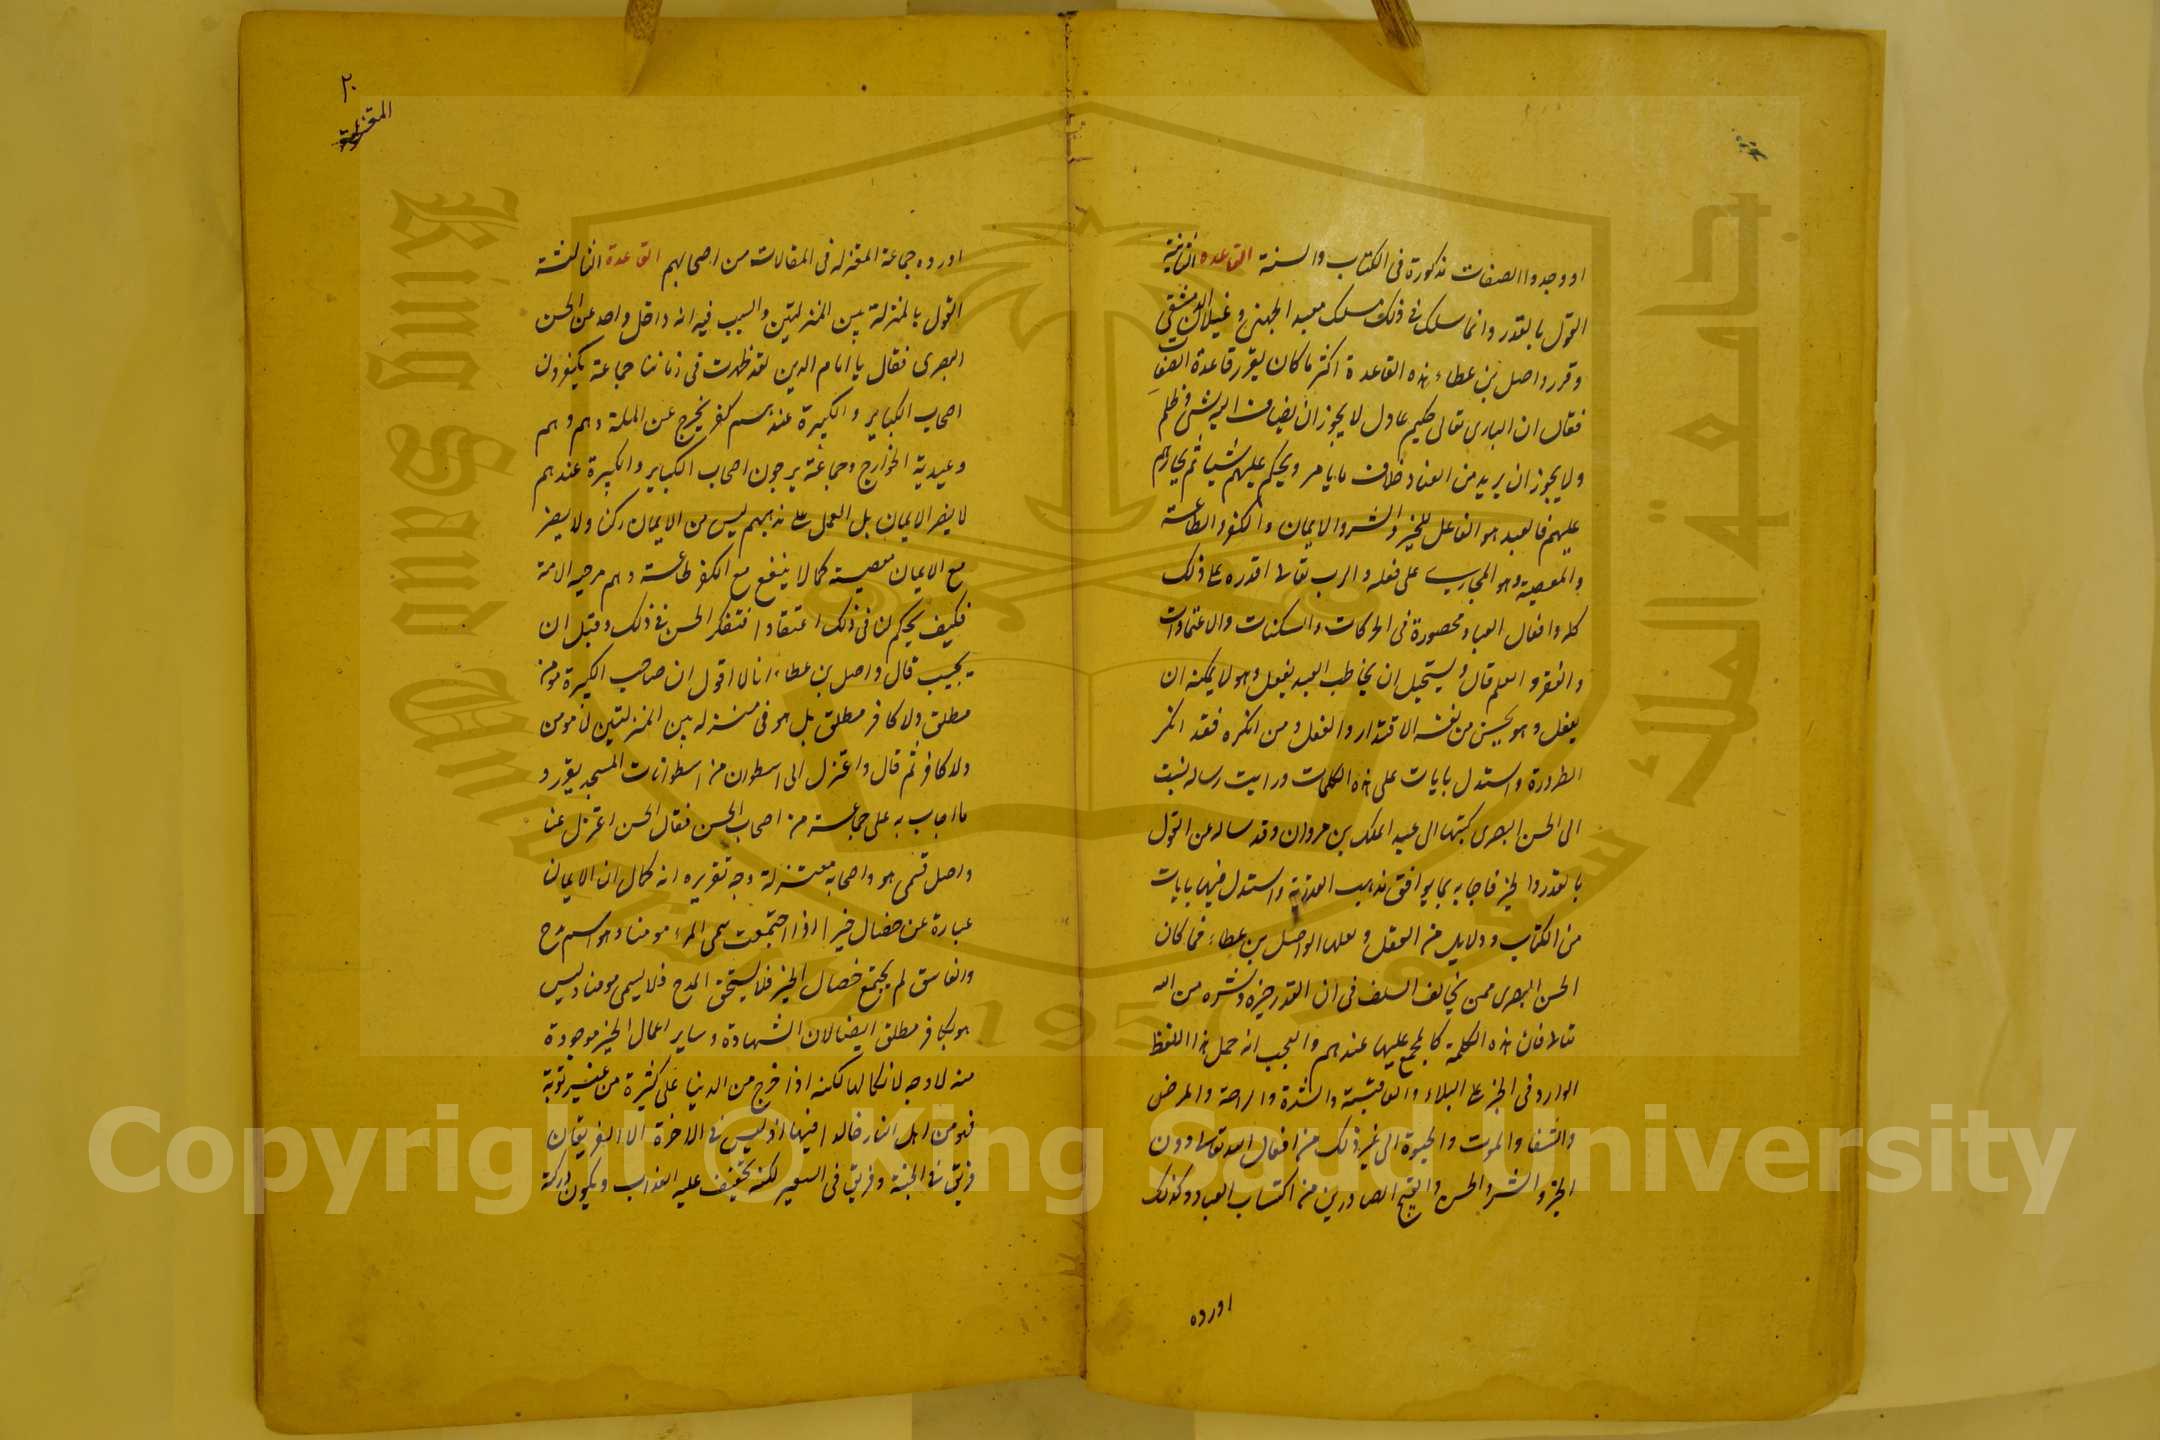 او وجدوا الصفات مذكورة فى الكتاب والسنة القاعده الثانية
القول بالقدر وانما سلك فى ذلك مسلك معبد الجهنى وغيلان الدمشقى
وقرر واصل بن عطاء هذه القاعدة اكثر ما كان يقرر قاعدة الصفات
فقال ان البارى تعالى حكيم عادل لا يجوز ان يضاف اليه شر وظلم
ولا يجوز ان يريد من العباد خلاف ما يامر ويحكم عليهم شيا ثم يجازيهم
عليهم فالعبد هو الفاعل للخير والشر والايمان والكفر والطاعة
والمعصية وهو المجازى على فعله والرب تعالى اقدره على ذلك
كله وافعال العباد محصورة فى الحركات والسكنات والاعتمادات
والنظر والعلم قال ويستحيل ان يخاطب العبد بفعل وهو لا يمكنه ان
يفعل وهو يحس من نفسه الاقتدار والفعل ومن انكره فقد انكر
الضرورة واستدل بايات على هذه الكلمات ورايت رسالة نسبت
الى الحسن البصرى كتبها الى عبد الملك بن مروان وقد ساله عن القول
بالقدر والجبر فاجابه بما يوافق مذهب القدرية واستدل فيها بايات
من الكتاب ودلايل من العقل ولعلها لواصل بن عطاء فما كان
الحسن البصرى ممن يخالف السلف فى ان القدر خيره وشره من الله
تعالى فان هذه الكلمة كالمجمع عليها عندهم والعجب انه حمل هذا اللفظ
الوارد فى الخبر على البلاء والعافية والشدة والراحة والمرض
والشفا والموت والحيوة الى غير ذلك من افعال الله تعالى دون
الخير والشر والحسن والقبيح الصادرين من اكتساب العباد وكذلك
اورده
٢٠
المعتزلة
اورده جماعة المعتزله فى المقالات من اصحابهم القاعدة الثالثة
القول بالمنزلة بين المنزلتين والسبب فيه انه دخل واحد على الحسن
البصرى فقال يا امام الدين لقد ظهرت فى زماننا جماعة يكفرون
اصحاب الكباير والكبيرة عندهم كفر يخرج عن الملة وهم وهم
وعيدية الخوارج وجماعة يرجون اصحاب الكباير والكبيرة عندهم
لا يضر الايمان بل العمل على مذهبهم ليس من الايمان ركنا ولا يضر
مع الايمان معصية كما لا ينفع مع الكفر طاعة وهم مرجية الامة
فكيف يحكم لنا فى ذلك اعتقادا فتفكر الحسن فى ذلك وقبل ان
يجيب قال واصل بن عطاء انا لا اقول ان صاحب الكبيرة مومن
مطلق ولا كافر مطلق بل هو فى منزله بين المنزلتين لا مومن
ولا كافر ثم قال واعتزل الى اسطوان من اسطوانات المسجد يقرر
ما اجاب به على جماعة من اصحاب الحسن فقال الحسن اعتزل عنا
واصل فسمى هو واصحابه معتزلة وجه تقريره انه قال ان الايمان
عبارة عن خصال خير اذا اجتمعت سمى المرء مومنا وهو اسم مدح
والفاسق لم يجتمع خصال الخير فلا يستحق المدح فلا يسمى مومنا وليس
هو بكافر مطلق ايضا لان الشهادة وساير اعمال الخير موجودة
منه لا وجه لانكارها لكنه اذا خرج من الدنيا على كبيرة من غير توبة
فهو من اهل النار خالدا فيها اذ ليس فى الاخرة الا الفريقان
فريق فى الجنة وفريق فى السعير لكنه يخفف عليه العذاب ويكون دركة
جامعة الملك سعود
King Saud University
1957
Copyright © King Saud University